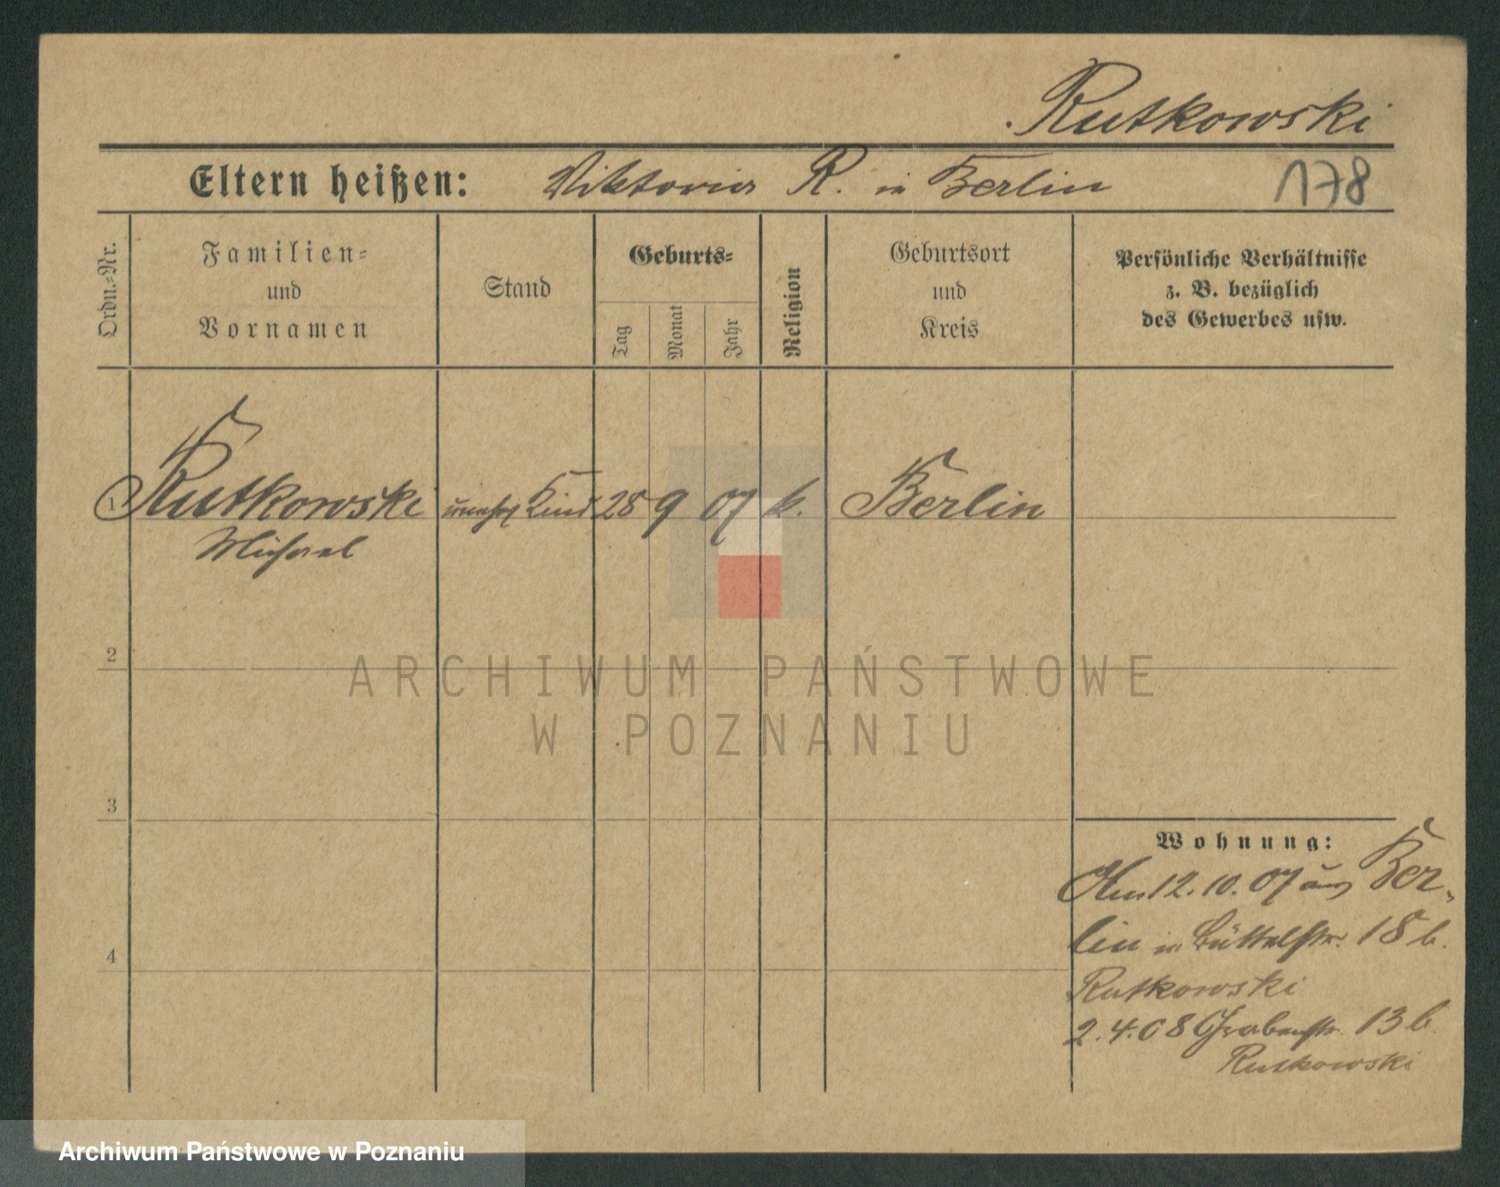 Rutkowski
Eltern heißen: Viktoria R. in Berlin
178
Ordn.-Nr.
Familien-
und
Vornamen
Stand
Geburts-
Tag
Monat
Jahr
Religion
Geburtsort
und
Kreis
Persönliche Verhältnisse
z. B. bezüglich
des Gewerbes usw.
Rutkowski Kind 28 9 07 k. Berlin
Michael
2
3
4
Wohnung:
Am 12. 10. 07 aus Ber-
lin in Büttelstr. 18 b.
Rutkowski
2. 4. 08 Grabenstr. 13 b.
Rutkowski
ARCHIWUM PAŃSTWOWE
W POZNANIU
Archiwum Państwowe w Poznaniu